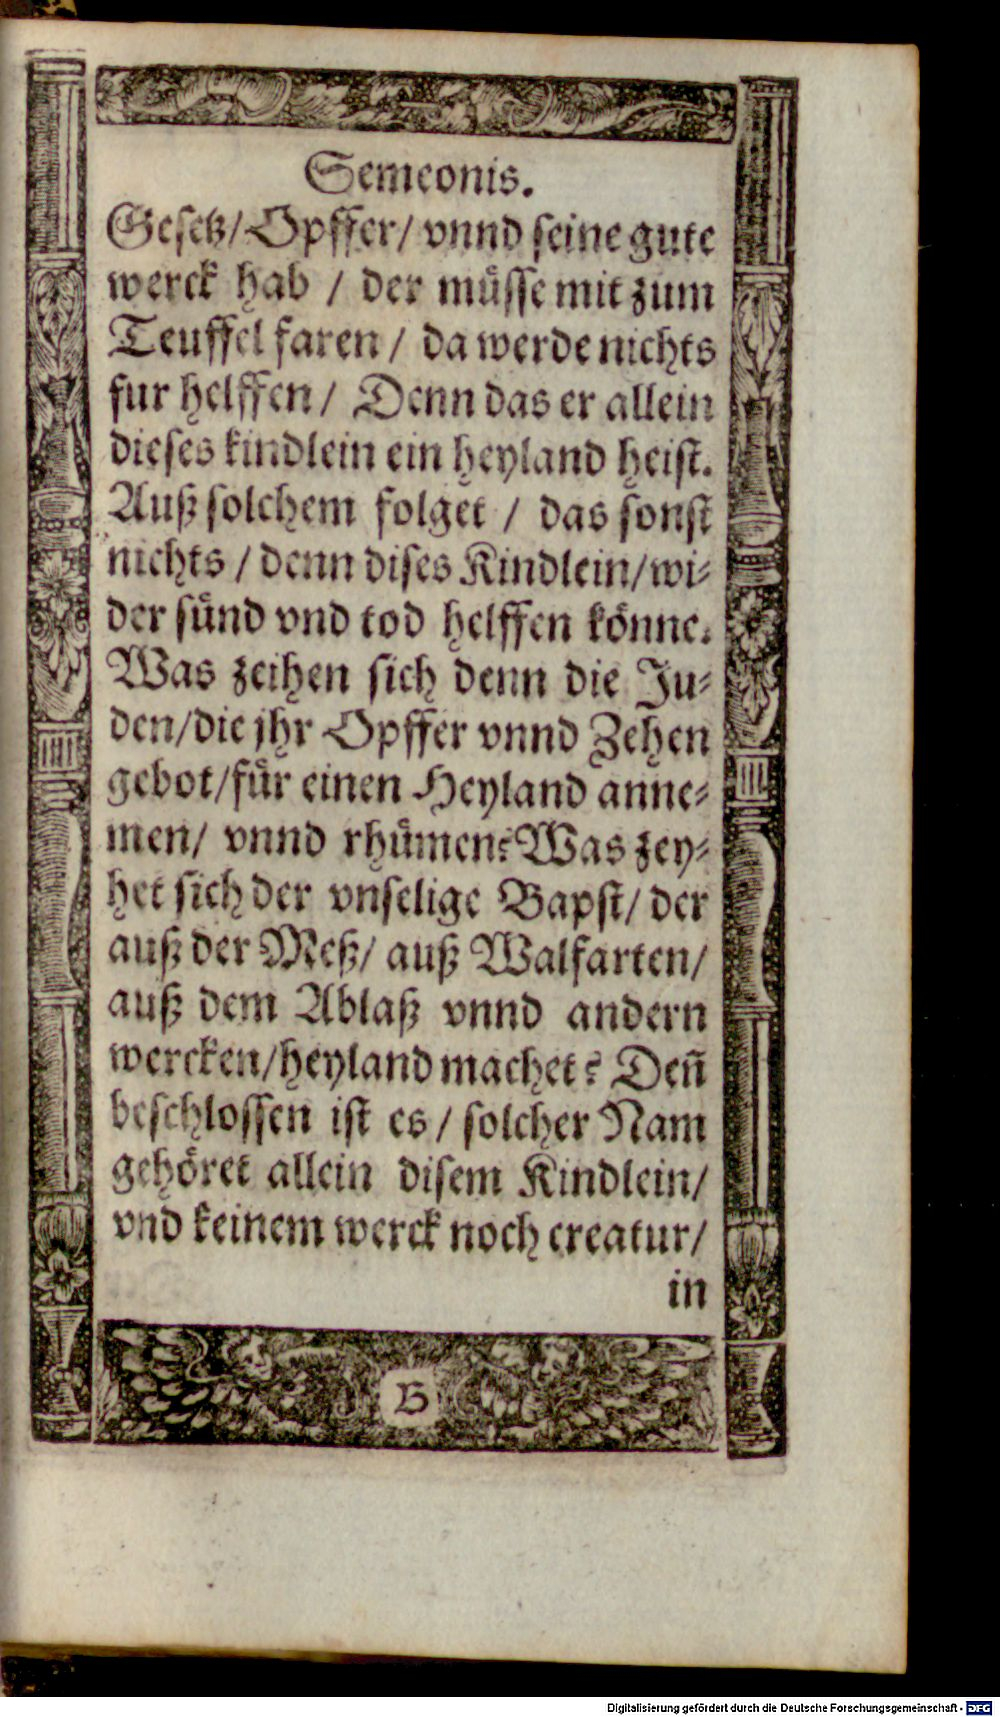 Semeonis.
Gesetz/ Opffer/ vnnd seine gute
werck hab / der müsse mit zum
Teuffel faren / da werde nichts
fur helffen / Denn das er allein
dieses kindlein ein heyland heist.
Auß solchem folget / das sonst
nichts / denn dises Kindlein/ wi-
der sünd vnd tod helffen könne.
Was zeihen sich denn die Ju-
den/die jhr Opffer vnnd Zehen
gebot/für einen Heyland anne-
men/ vnnd rhümen? Was zey-
het sich der vnselige Bapst/ der
auß der Meß/ auß Walfarten/
auß dem Ablaß vnnd andern
wercken/heyland machet? Deñ
beschlossen ist es / solcher Nam
gehöret allein disem Kindlein/
vnd keinem werck noch creatur/
in
B
Digitalisierung gefördert durch die Deutsche Forschungsgemeinschaft - DFG